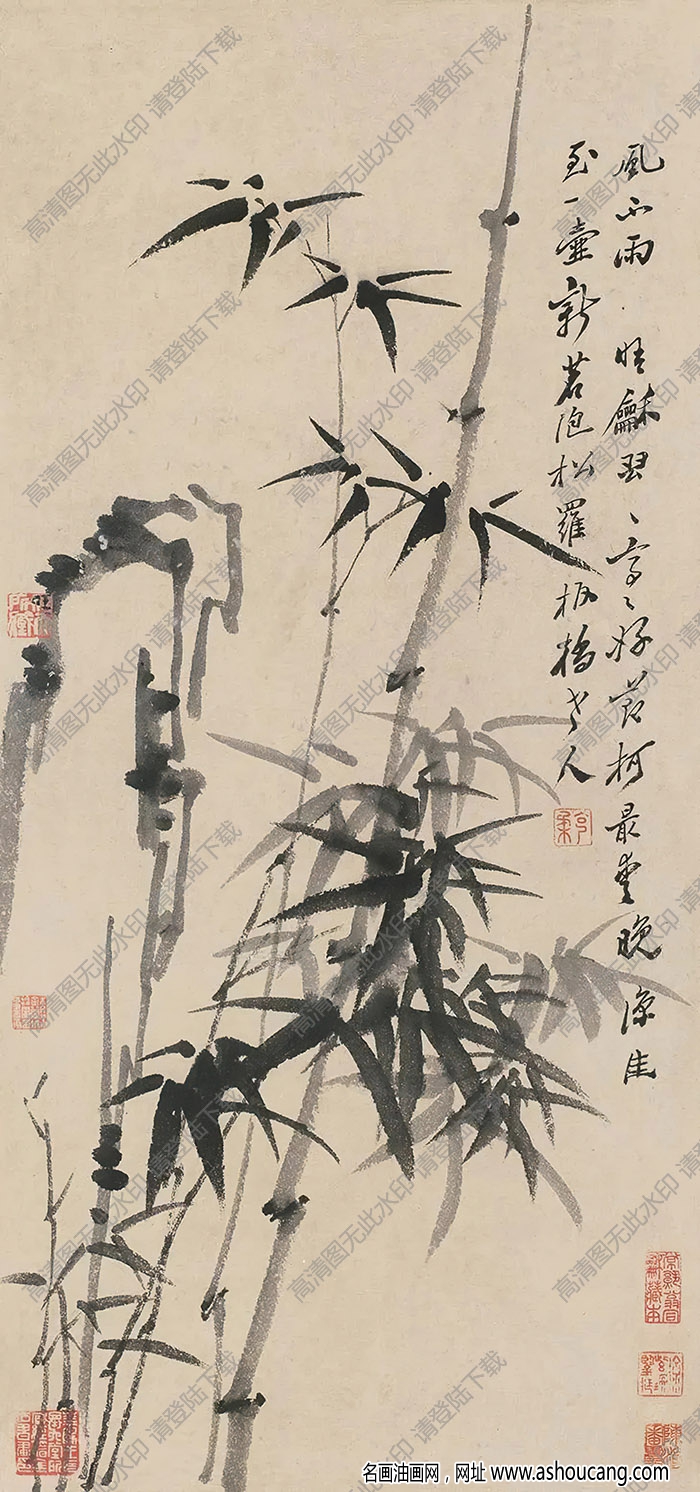 風不雨 晴龢翠、亭、好節柯最愛晚涼佳
至一壺新茗泡松羅板橋老人
高清图无此水印 请登陆下载
名画油画网，网址 www.ashoucang.com